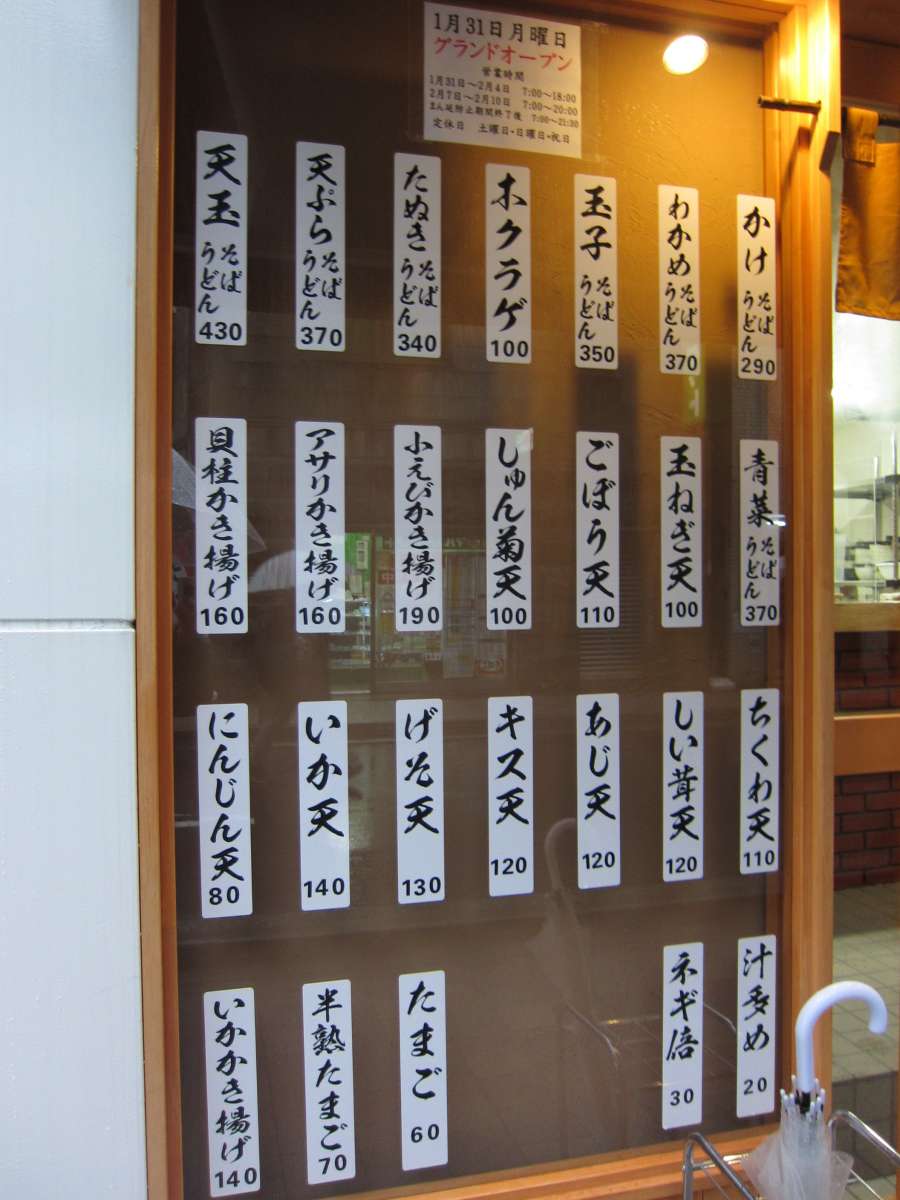 1月31日月曜日
グランドオープン
営業時間
1月31日～2月4日 7:00～18:00
2月7日～2月10日 7:00～20:00
まん延防止期間終了後 7:00～21:30
定休日 土曜日・日曜日・祝日
かけ そば うどん 290
わかめ そば うどん 370
玉子 そば うどん 350
ホクラゲ 100
たぬき そば うどん 340
天ぷら そば うどん 370
天玉 そば うどん 430
青菜 そば うどん 370
玉ねぎ天 100
ごぼう天 110
しゅん菊天 100
小えびかき揚げ 190
アサリかき揚げ 160
貝柱かき揚げ 160
ちくわ天 110
しい茸天 120
あじ天 120
キス天 120
げそ天 130
いか天 140
にんじん天 80
汁多め 20
ネギ倍 30
たまご 60
半熟たまご 70
いかかき揚げ 140